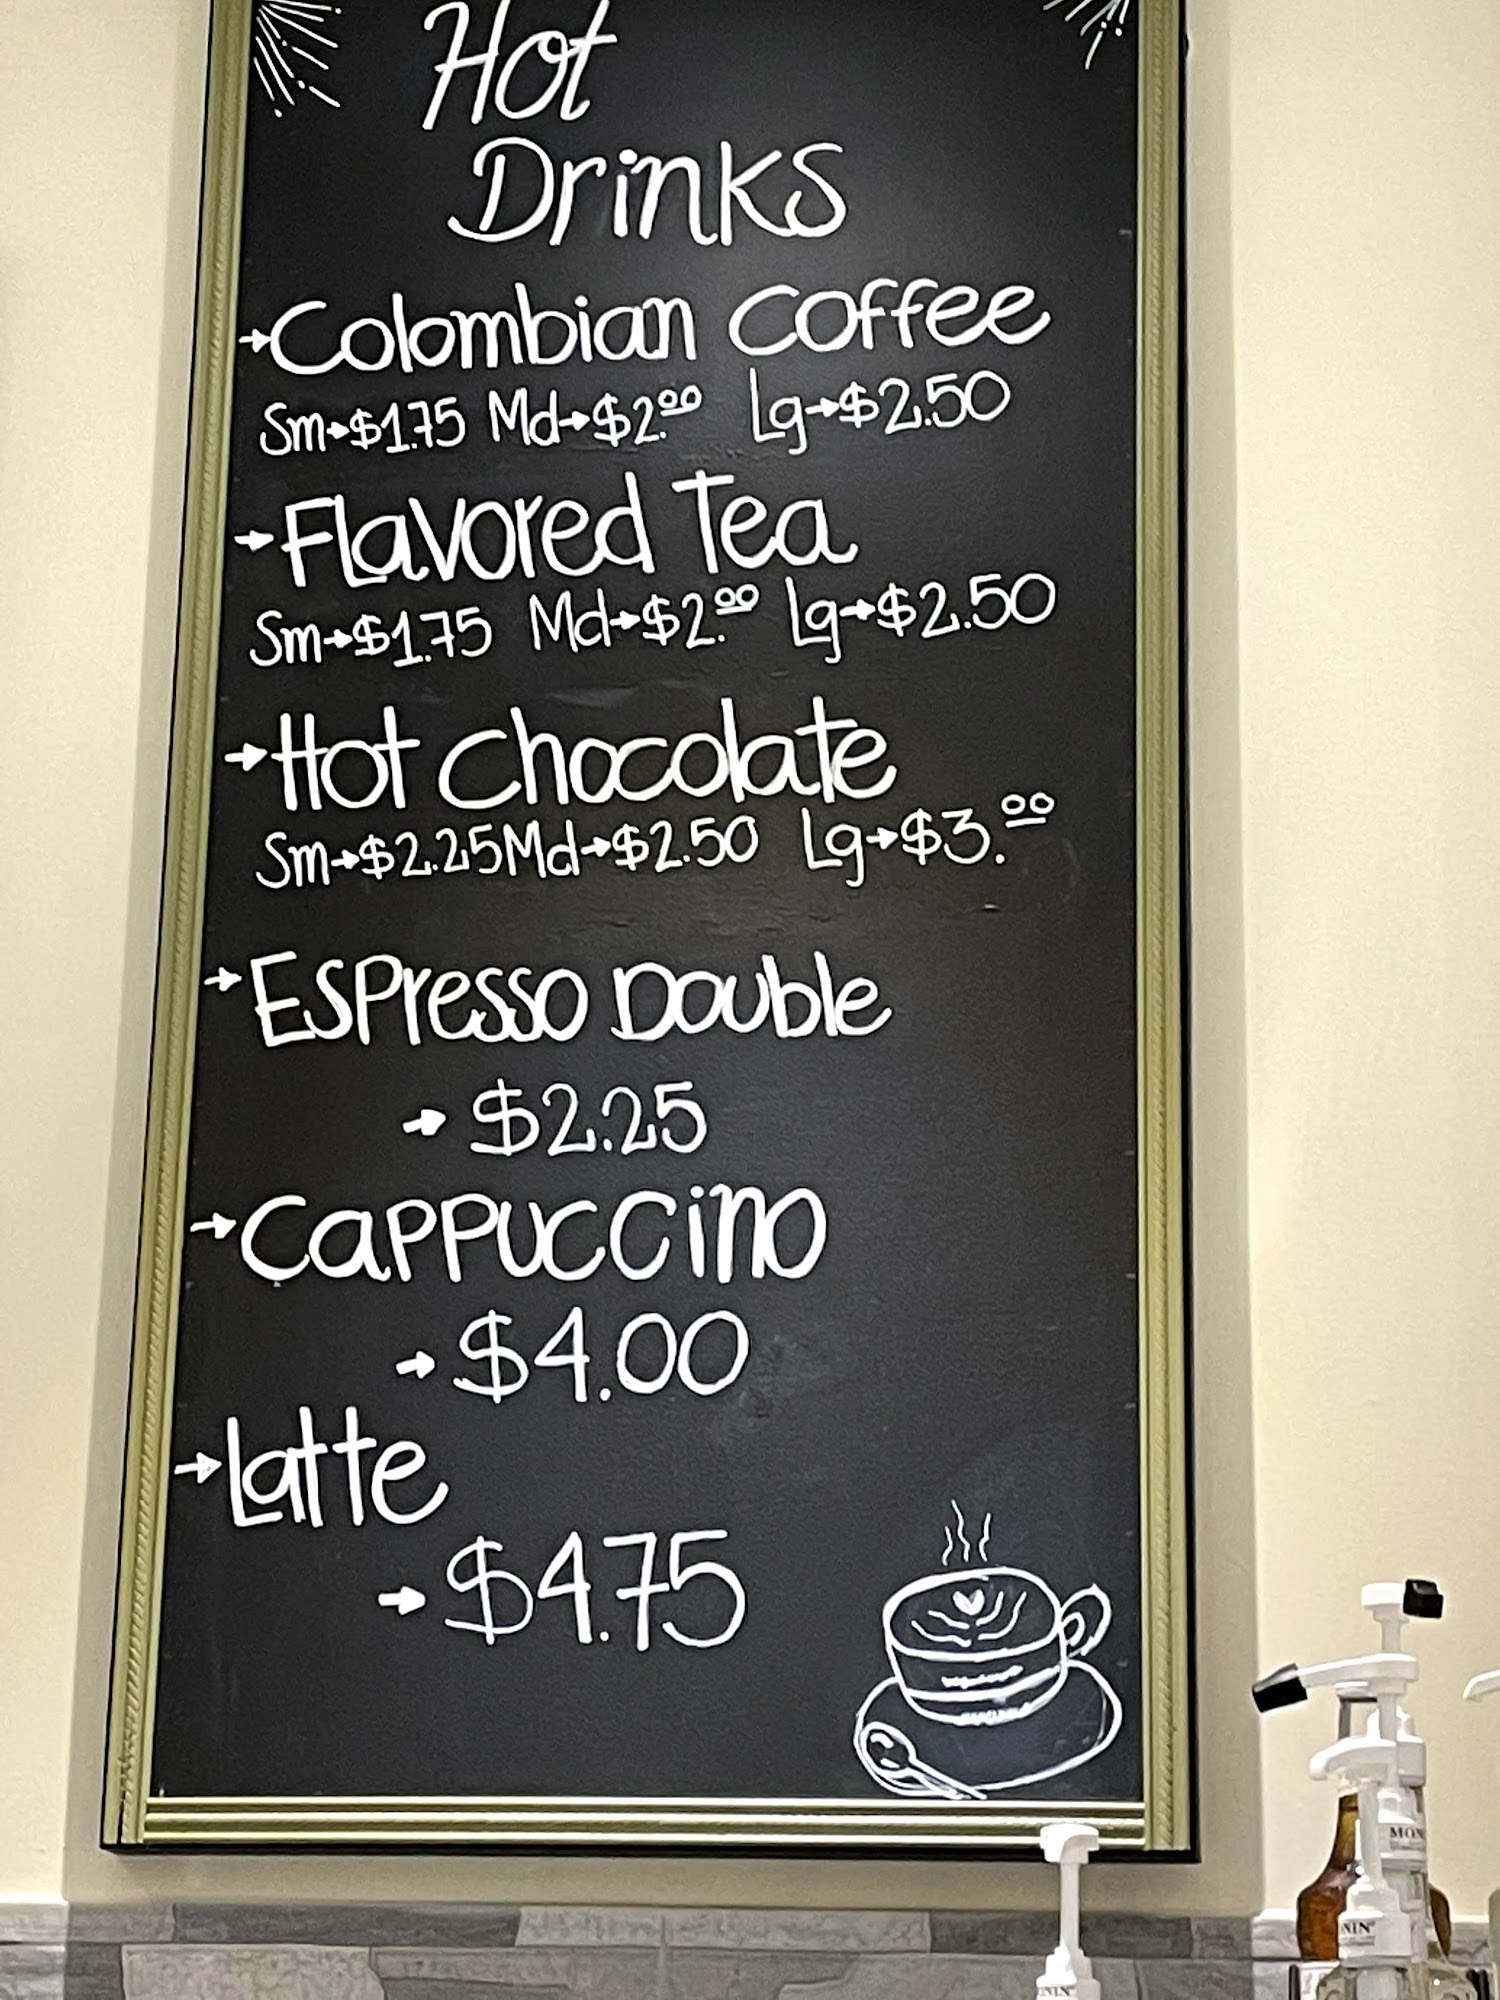 Hot
Drinks
→Colombian Coffee
Sm→$1.75 Md→$2.00 Lg→$2.50
→Flavored Tea
Sm→$1.75 Md→$2.00 Lg→$2.50
→Hot Chocolate
Sm→$2.25 Md→$2.50 Lg→$3.00
→Espresso Double
→$2.25
→Cappuccino
→$4.00
→Latte
→$4.75
MON
NIN